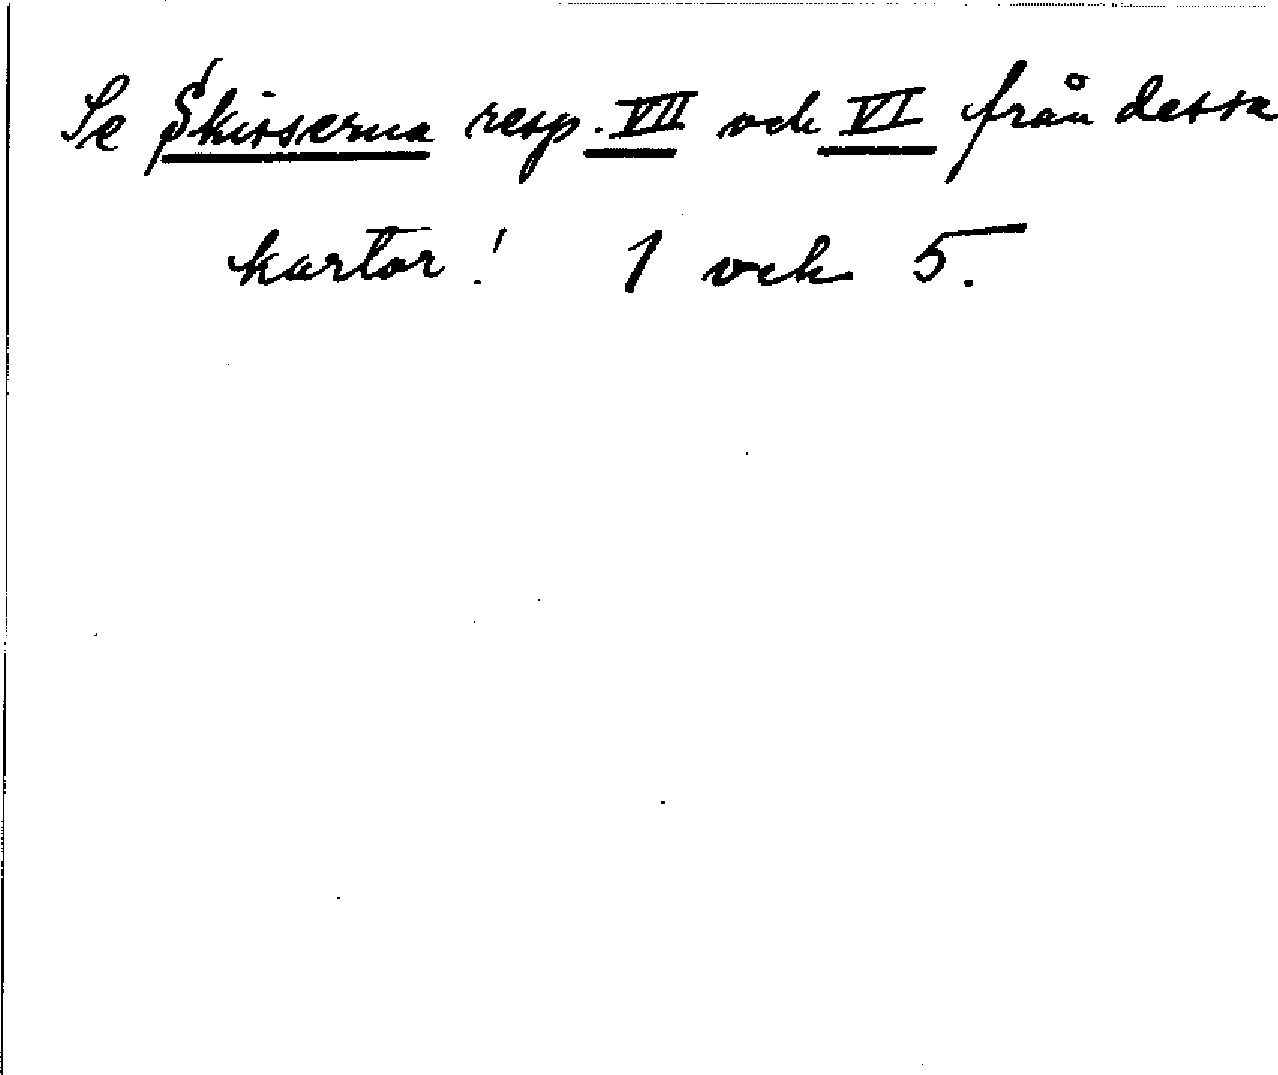 Se Skisserna resp. VII och VI från dessa
kartor! 1 och 5.